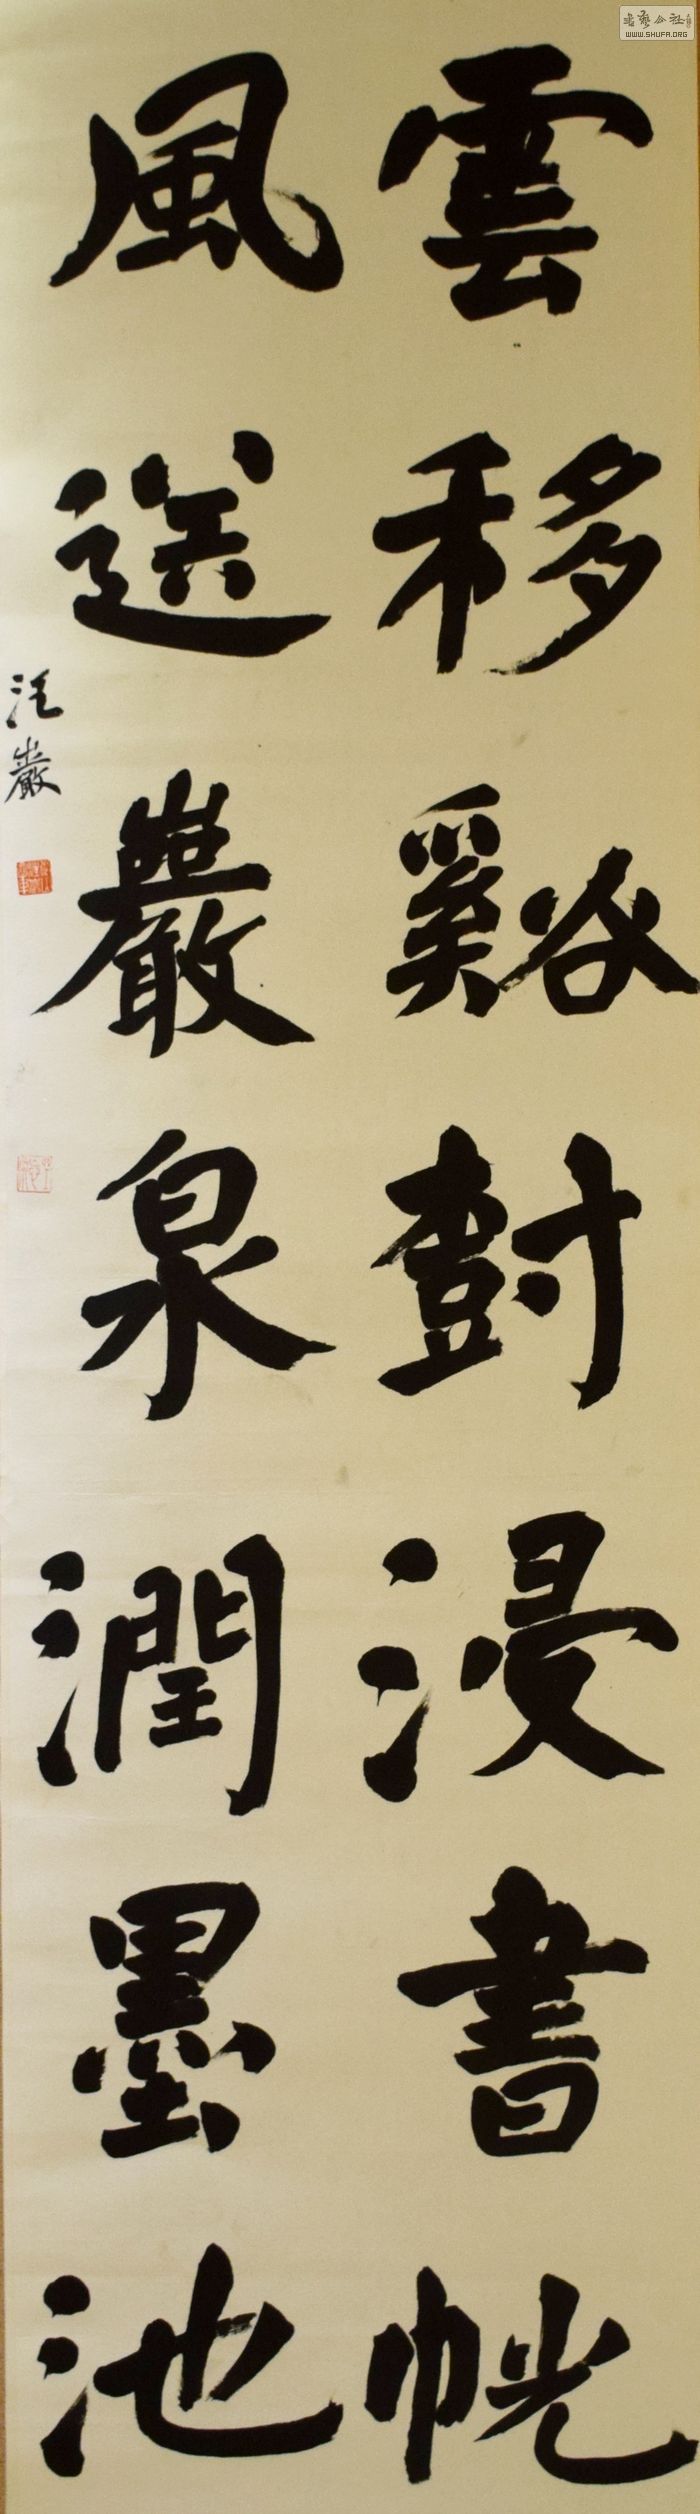 雲移谿尌浸書幌
風送巖泉潤墨池
汪巖
书艺公社
WWW.SHUFA.ORG